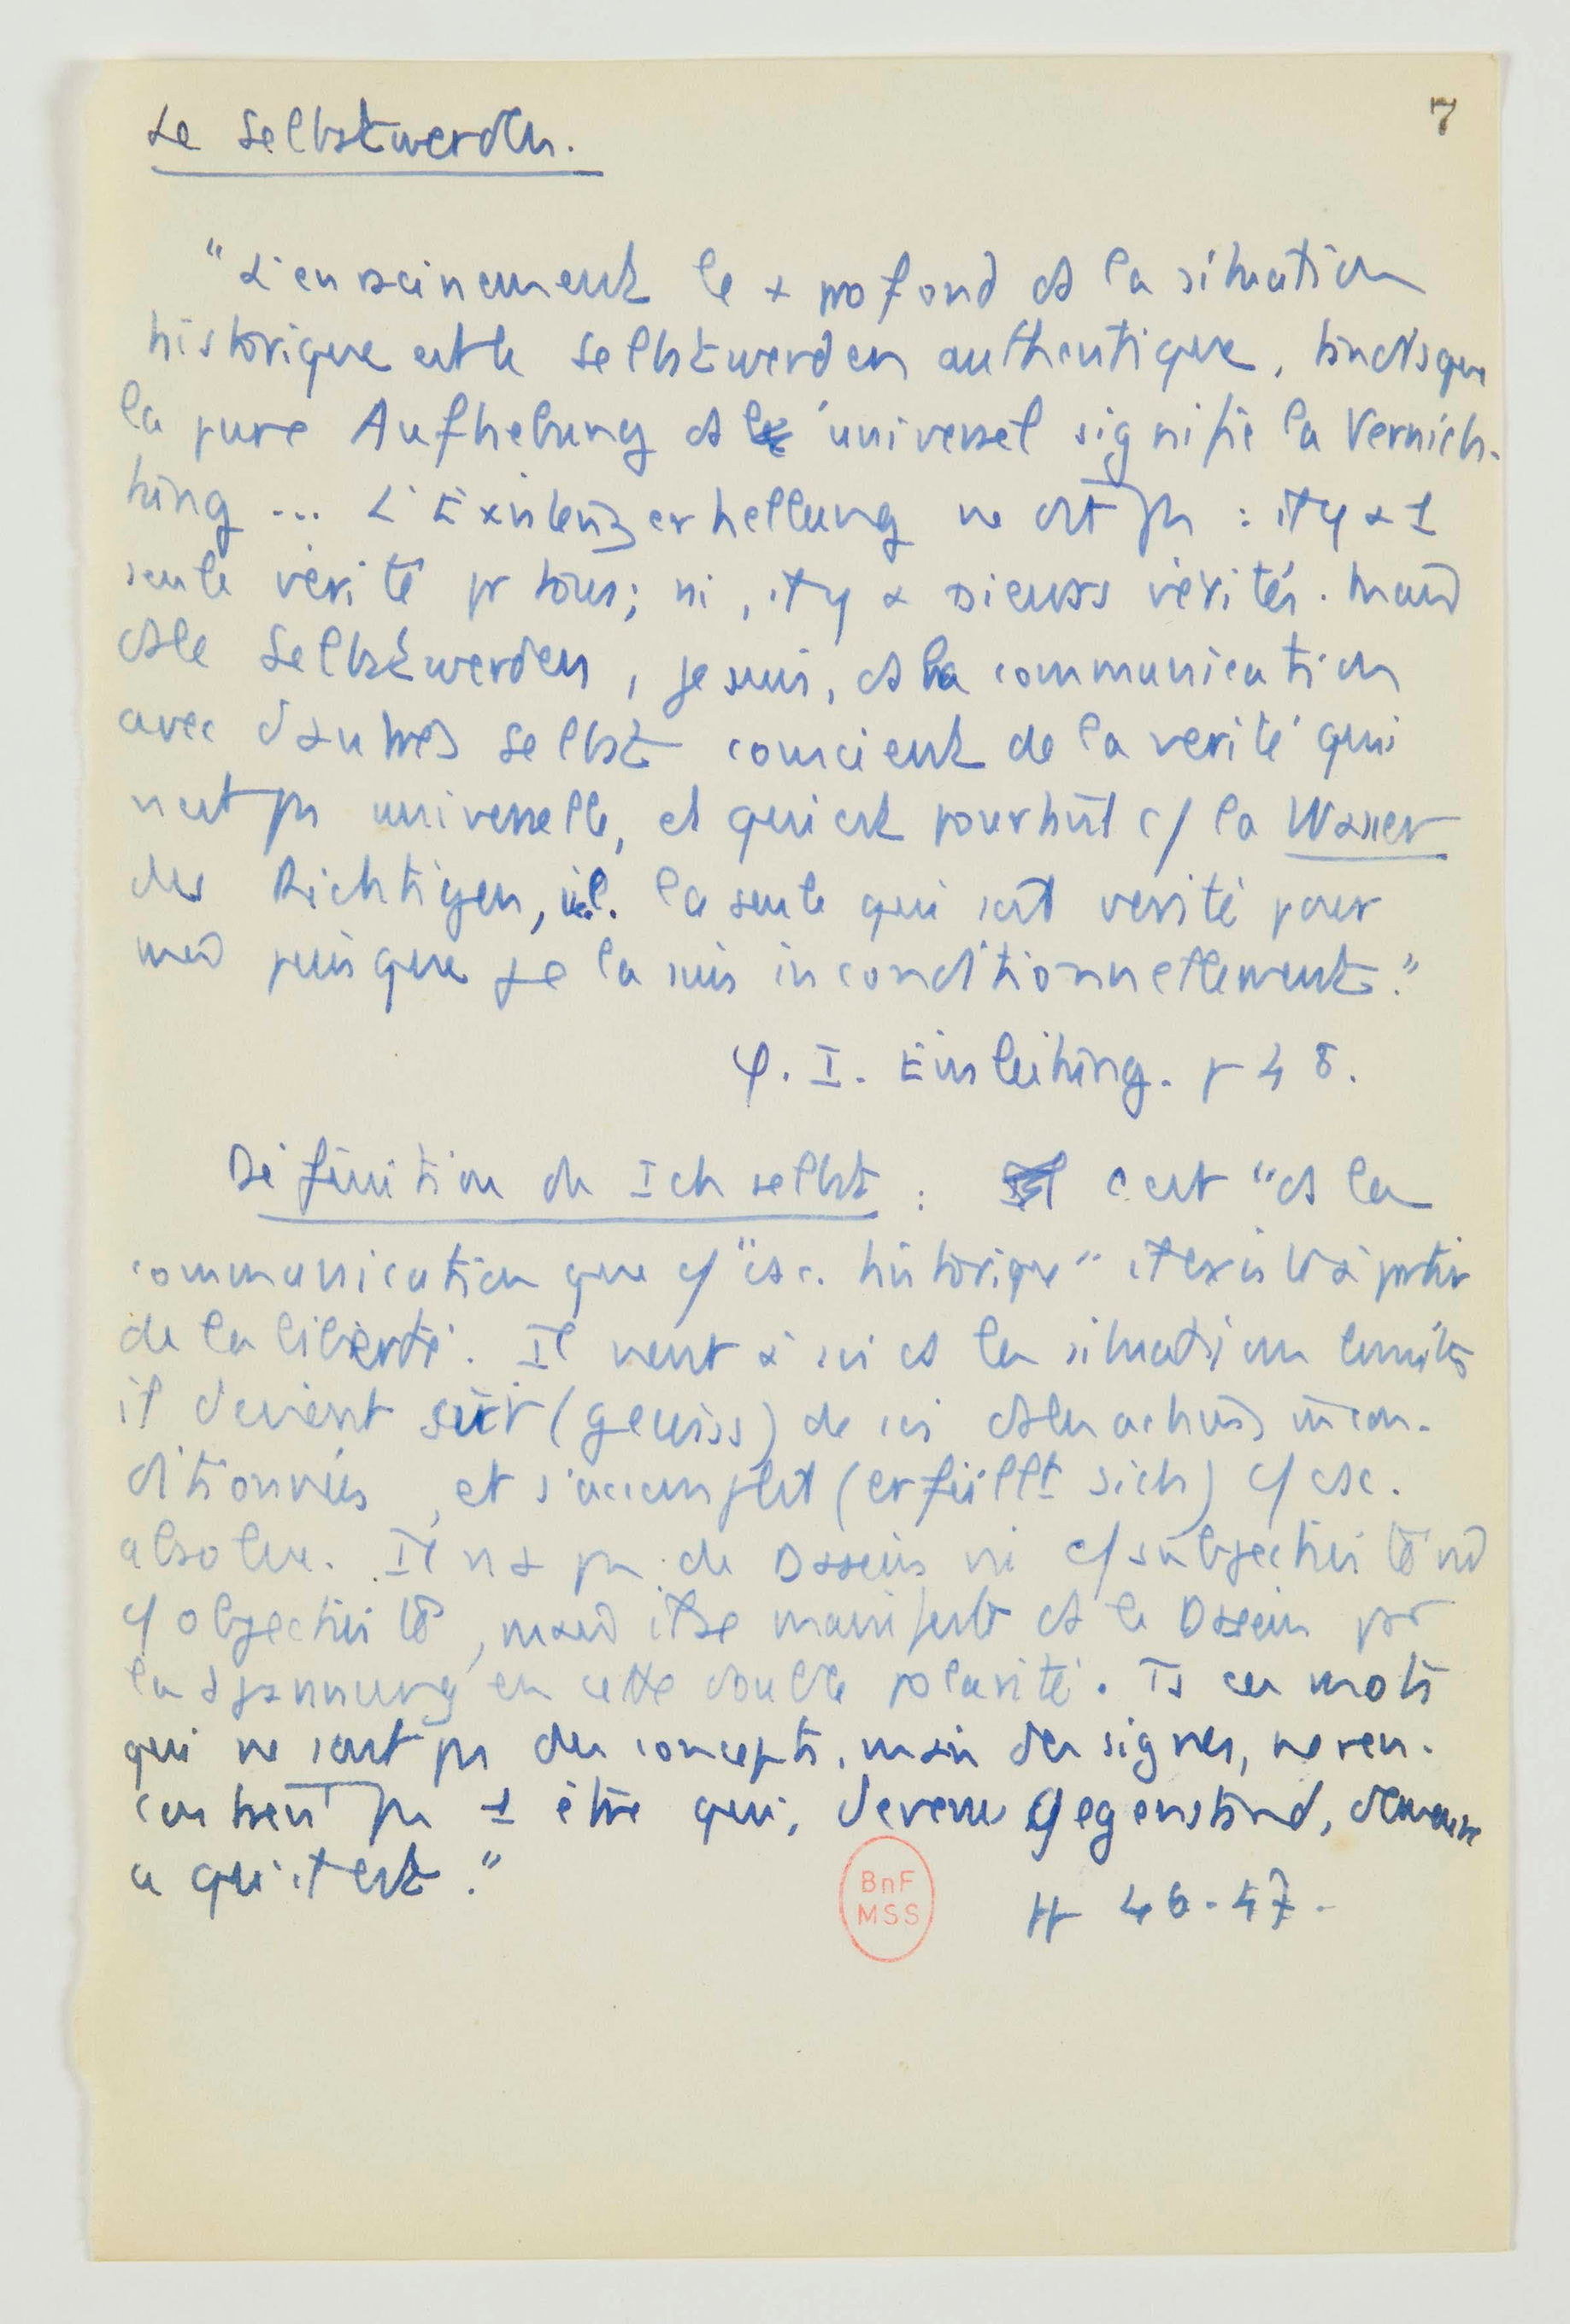 Le Selbstwerden.
7
"L'enracinement le + profond ds la situation
historique est le Selbstwerden authentique, tandis que
la pure Aufhebung ds l'universel signifie la Vernich-
tung ... L'Existenzerhellung ne dit pas : il y a 1
seule vérité pr tous ; ni, il y a plusieurs vérités. Mais
ds le Selbstwerden, je suis, ds la communication
avec d'autres Selbst conscient de la vérité qui
n'est pas universelle, et qui est pourtant c/ la Wasser
des Richtigen, la seule qui soit vérité pour
moi puisque je la suis inconditionnellement."
φ. I. Einleitung. p 48.
Définition du Ich selbst : c'est "ds la
communication que c/ "csc. historique" il existe à partir
de la liberté. Il vient à soi ds les situations limites
il devient sûr (gewiss) de soi ds les actions incon-
ditionnées, et s'accomplit (erfüllt sich) c/ csc.
absolue. Il n'a pas de Dasein ni c/ subjectivité ni
c/ objectivité, mais il se manifeste ds le Dasein par
la Spannung en cette double polarité. Ts ces mots
qui ne sont pas des concepts, mais des signes, ne ren-
contrent pas 1 être qui, devenu Gegenstand, demeure
ce qu'il est."
BnF
MSS
pp 46-47-